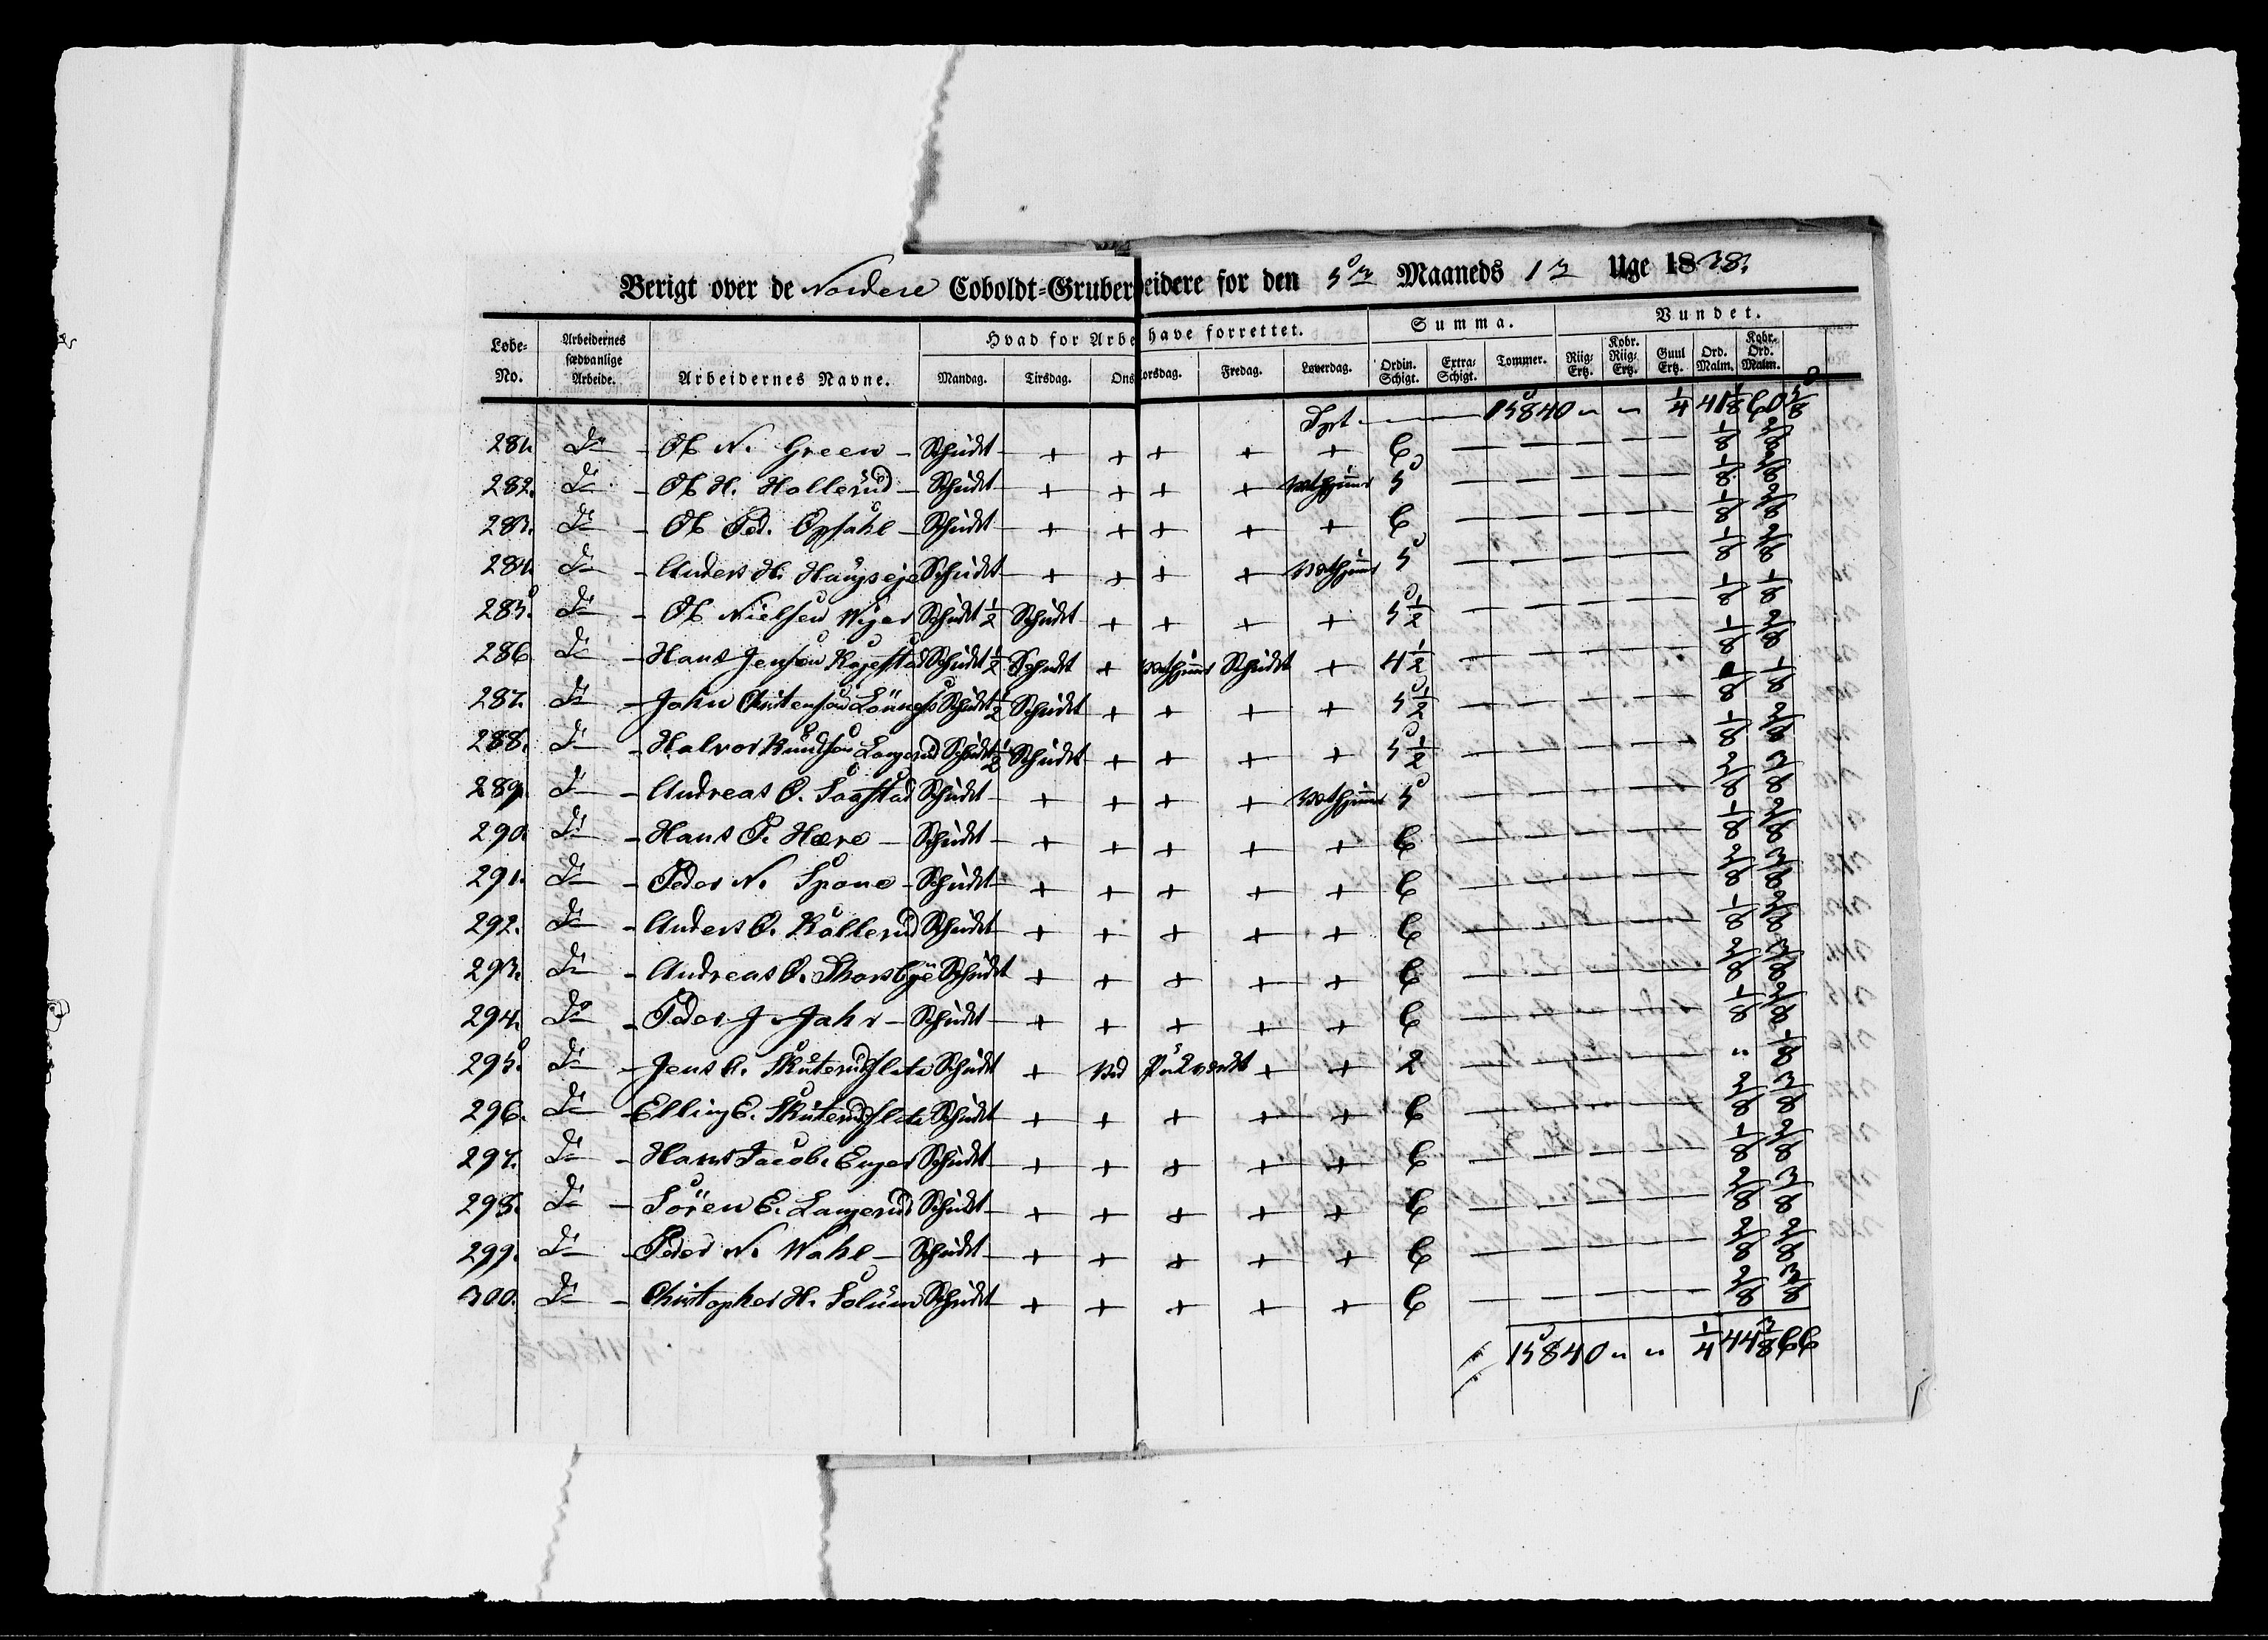 Berigt over de Nordere Coboldt-Gruber eidere for den 5te Maaneds 1te Uge 1838.
Lobe-No. Arbeidernes sædvanlige Arbeide. Arbeidernes Navne. Hvad for Arbe have forrettet. Summa. Vundet.
Mandag. Tirsdag. Ons orsdag. Fredag. Løverdag. Ordin. Schigt. Extra-Schigt. Tommer. Riig-Ertz. Kobr. Riig-Ertz. Guul Ertz. Ord. Malm. Kobr. Ord. Malm.
Tpt. — — 15840 " " 1/4 41 1/8 60 5/8
281. Do - Ol N. Green - Scheidt + + + + + 6 — — — — — 1/8 2/8
282. Do - Ol H. Hollerud - Scheidt + + + + 5 — — — — — 1/8 2/8
283. Do - Ol Ped. Opsahl - Scheidt + + + + + 6 — — — — — 1/8 2/8
284. Do - Anders H. Haugseje Scheidt + + + + 5 — — — — — 1/8 2/8
285. Do - Ol Nielsen Wiger Scheidt 1/2 Scheidt + + + + 5 1/2 — — — — — 1/8 1/8
286. Do - Hans Jensen Scheidt 1/2 Scheidt + Scheidt + 4 1/2 — — — — — 1/8 2/8
287. Do - John Christensen Scheidt 1/2 Scheidt + + + + 5 1/2 — — — — — 1/8 1/8
288. Do - Halvor Knudsen Langerud Scheidt 1/2 Scheidt + + + + 5 1/2 — — — — — 1/8 2/8
289. Do - Andreas O. Saastad Scheidt + + + + 5 — — — — — 2/8 3/8
290. Do - Hans P. Hære - Scheidt + + + + + 6 — — — — — 1/8 2/8
291. Do - Peder N. Spone - Scheidt + + + + + 6 — — — — — 2/8 3/8
292. Do - Anders O. Kollerud Scheidt + + + + + 6 — — — — — 1/8 2/8
293. Do - Andreas O. Thorsbye Scheidt + + + + + 6 — — — — — 2/8 3/8
294. Do - Peder J. Jahr - Scheidt + + + + + 6 — — — — — 1/8 2/8
295. Do - Jens E. Skuterudflata Scheidt + Ved Pukværkt + + 2 — — — — — " 1/8
296. Do - Elling E. Skuterudflata Scheidt + + + + + 6 — — — — — 2/8 3/8
297. Do - Hans Jacob. Enger Scheidt + + + + + 6 — — — — — 1/8 2/8
298. Do - Sören E. Langerud Scheidt + + + + + 6 — — — — — 2/8 3/8
299. Do - Peder N. Wahl - Scheidt + + + + + 6 — — — — — 2/8 2/8
300. Do - Christopher H. Solum Scheidt + + + + + 6 — — — — — 2/8 3/8
15840 " " 1/4 44 3/8 66